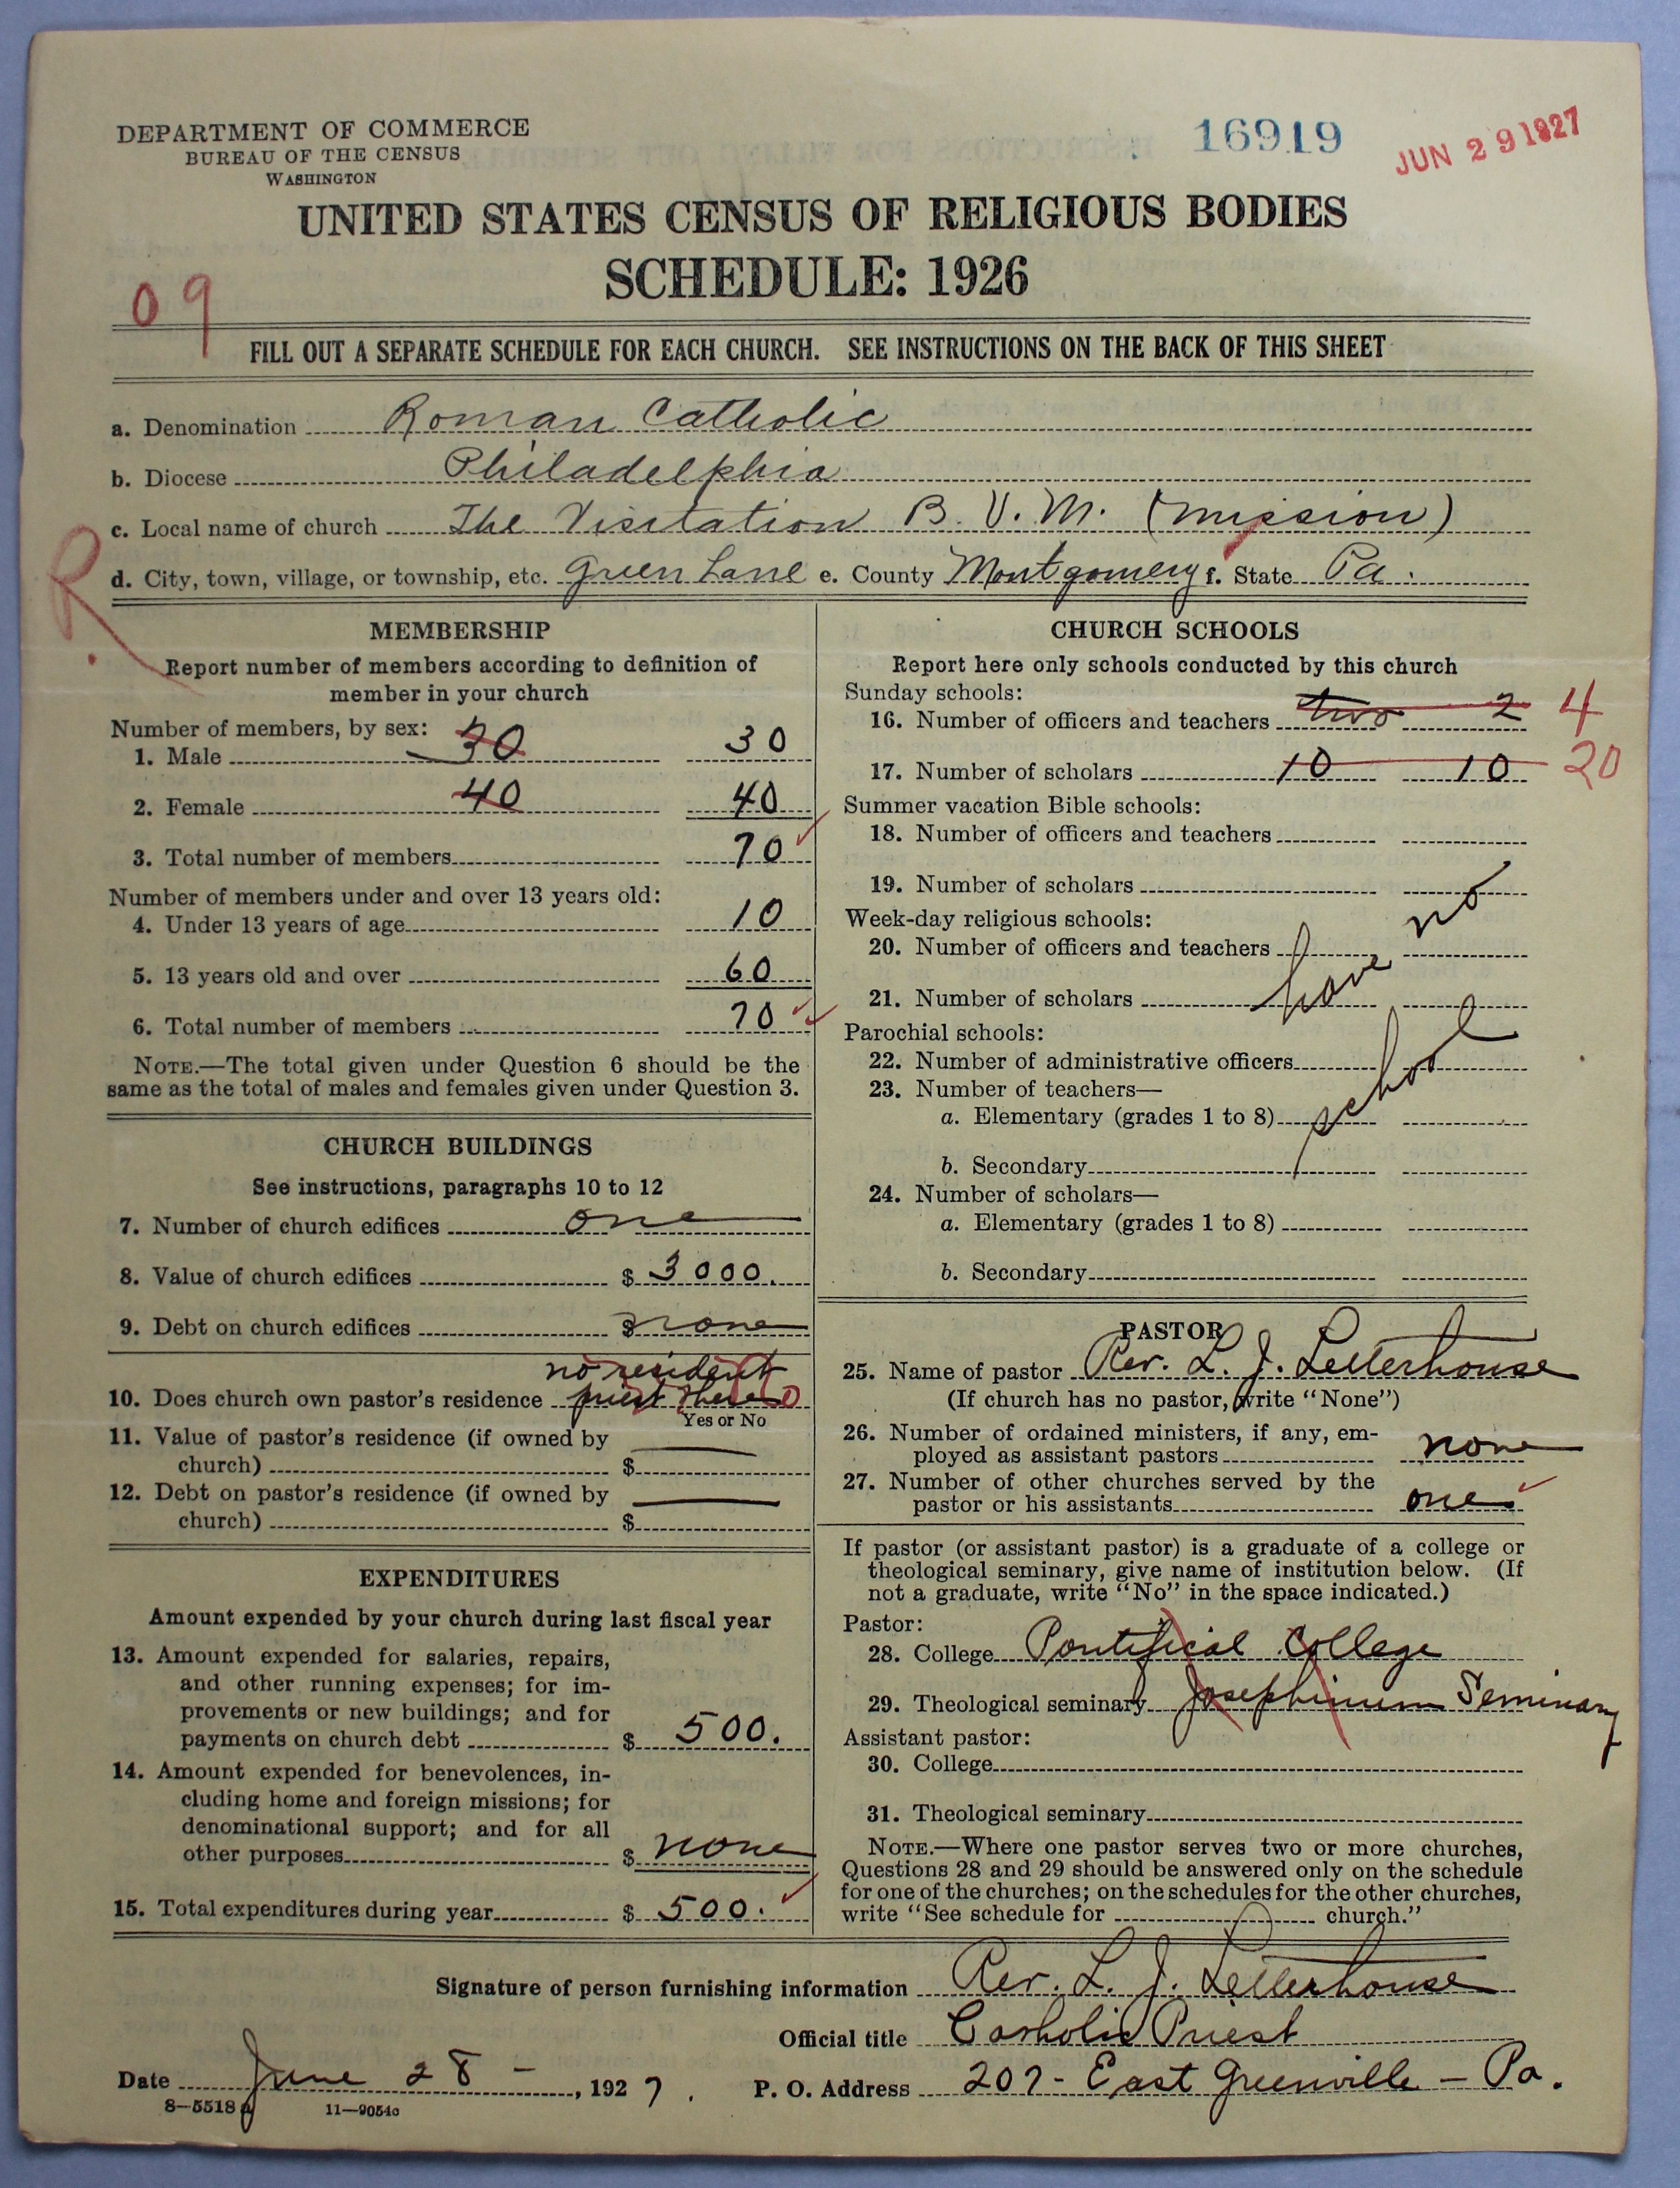 DEPARTMENT OF COMMERCE
BUREAU OF THE CENSUS
WASHINGTON
16919
JUN 29 1927
UNITED STATES CENSUS OF RELIGIOUS BODIES
SCHEDULE: 1926
09
FILL OUT A SEPARATE SCHEDULE FOR EACH CHURCH. SEE INSTRUCTIONS ON THE BACK OF THIS SHEET
a. Denomination Roman Catholic
b. Diocese Philadelphia
c. Local name of church The Visitation B. V. M. (mission)
d. City, town, village, or township, etc. Green Lane e. County Montgomery f. State Pa.
R.
MEMBERSHIP
Report number of members according to definition of
member in your church
Number of members, by sex:
1. Male 30 30
2. Female 40 40
3. Total number of members 70
Number of members under and over 13 years old:
4. Under 13 years of age 10
5. 13 years old and over 60
6. Total number of members 70
NOTE.—The total given under Question 6 should be the
same as the total of males and females given under Question 3.
CHURCH BUILDINGS
See instructions, paragraphs 10 to 12
7. Number of church edifices one
8. Value of church edifices $ 3000.
9. Debt on church edifices $ none
no resident
10. Does church own pastor's residence priest there No
Yes or No
11. Value of pastor's residence (if owned by
church) $
12. Debt on pastor's residence (if owned by
church) $
EXPENDITURES
Amount expended by your church during last fiscal year
13. Amount expended for salaries, repairs,
and other running expenses; for im-
provements or new buildings; and for
payments on church debt $ 500.
14. Amount expended for benevolences, in-
cluding home and foreign missions; for
denominational support; and for all
other purposes $ none
15. Total expenditures during year $ 500.
CHURCH SCHOOLS
Report here only schools conducted by this church
Sunday schools:
16. Number of officers and teachers two 2 4
17. Number of scholars 10 10 20
Summer vacation Bible schools:
18. Number of officers and teachers
19. Number of scholars
no
Week-day religious schools:
20. Number of officers and teachers
have
21. Number of scholars
Parochial schools:
22. Number of administrative officers
school
23. Number of teachers—
a. Elementary (grades 1 to 8)
b. Secondary
24. Number of scholars—
a. Elementary (grades 1 to 8)
b. Secondary
PASTOR
25. Name of pastor Rev. L. J. Letterhouse
(If church has no pastor, write "None")
26. Number of ordained ministers, if any, em-
ployed as assistant pastors none
27. Number of other churches served by the
pastor or his assistants one
If pastor (or assistant pastor) is a graduate of a college or
theological seminary, give name of institution below. (If
not a graduate, write "No" in the space indicated.)
Pastor:
28. College Pontifical College
29. Theological seminary Josephinum Seminary
Assistant pastor:
30. College
31. Theological seminary
NOTE.—Where one pastor serves two or more churches,
Questions 28 and 29 should be answered only on the schedule
for one of the churches; on the schedules for the other churches,
write "See schedule for church."
Signature of person furnishing information Rev. L. J. Letterhouse
Official title Catholic Priest
Date June 28 - , 1927. P. O. Address 207 - East Greenville - Pa.
8—5518 a 11—9054c